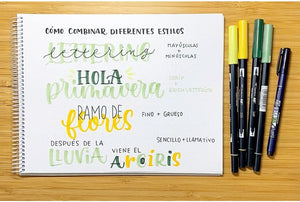 CÓMO COMBINAR DIFERENTES ESTILOS
LETTERING
lettering
MAYÚSCULAS + MINÚSCULAS
HOLA
primavera
SERIF + BRUSH LETTERING
RAMO DE
flores
FINO + GRUESO
DESPUÉS DE LA
LLUVIA
VIENE EL
ArOíRiS
SENCILLO + LLAMATIVO